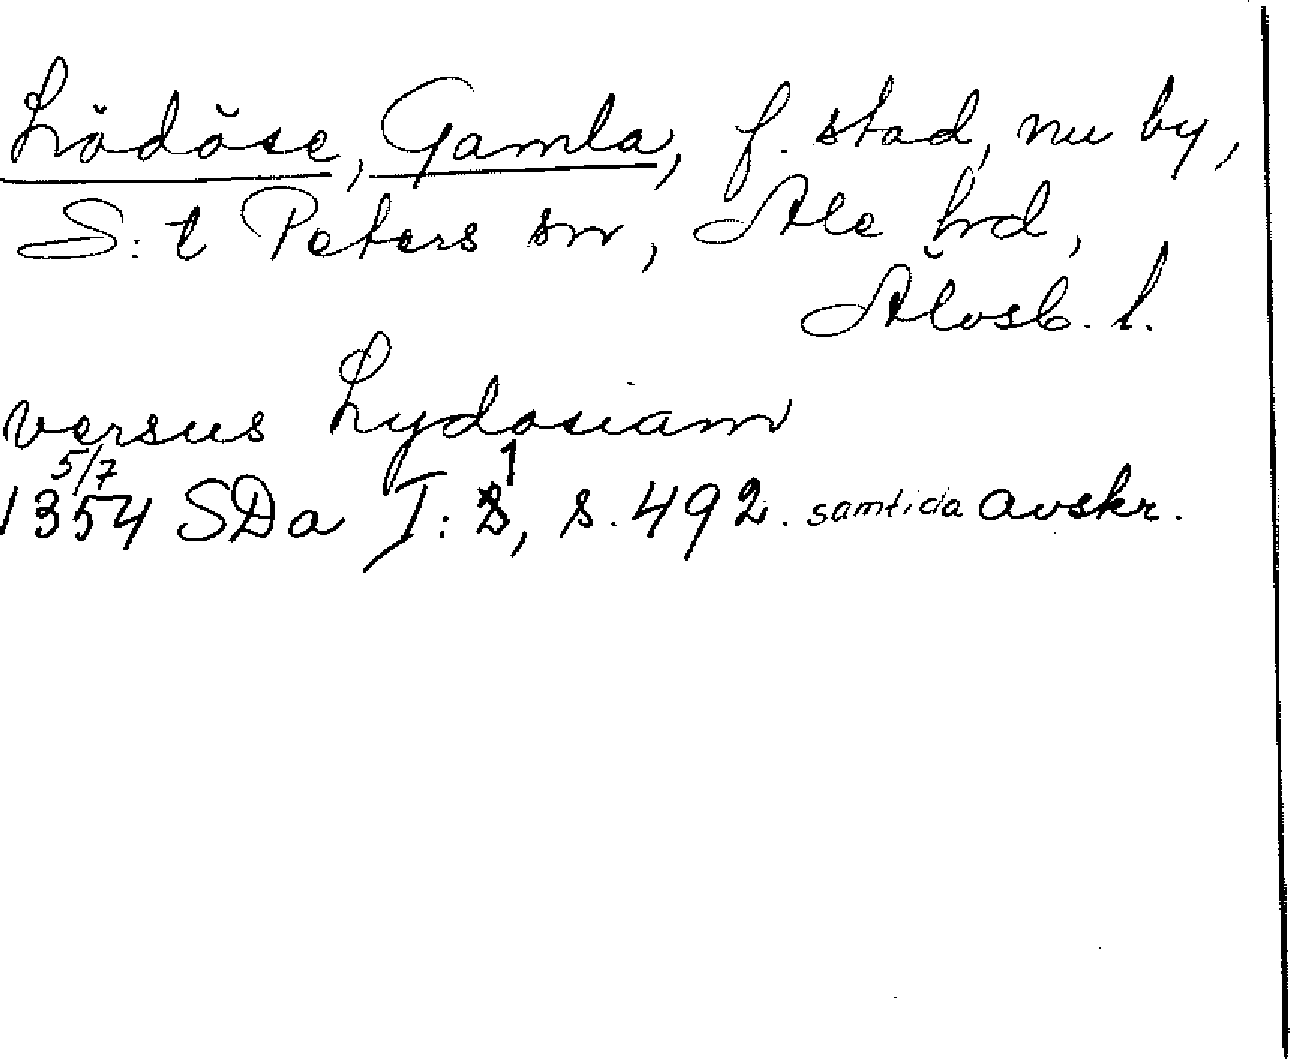 Lödöse, Gamla, f. stad, nu by,
S:t Peters sn, Ale hd,
Älvsb. l.
versus Lydosiam
1354 5/7 SDa I: 1, s. 492. samtida avskr.